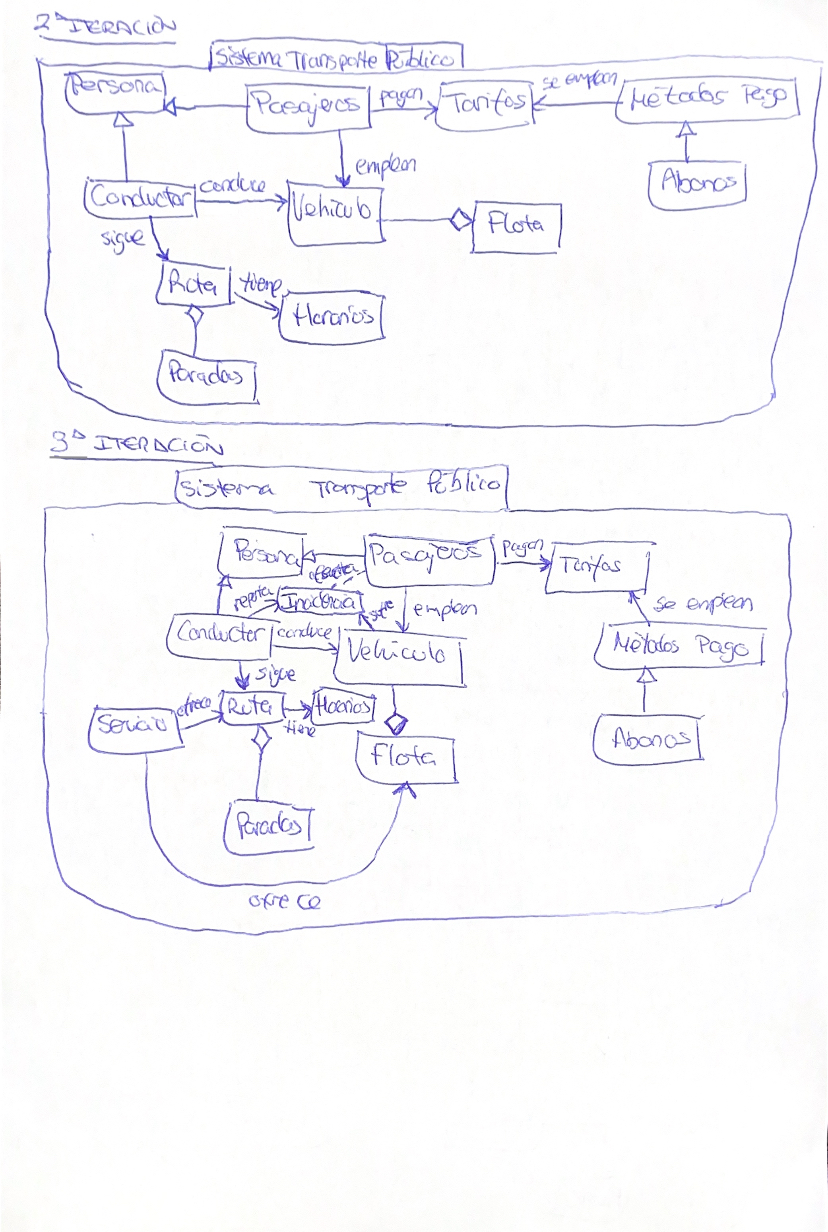 2ª ITERACIÓN
Sistema Transporte Público
Persona
Pasajeros
pagan
Tarifas
se emplean
Métodos Pago
emplean
Abonos
Conductor
conduce
Vehículo
Flota
sigue
Ruta
tiene
Horarios
Paradas
3ª ITERACIÓN
Sistema Transporte Público
Persona
Pasajeros
pagan
Tarifas
reporta
Incidencia
emplean
se emplean
Conductor
conduce
Vehículo
Métodos Pago
sigue
Servicio
ofrece
Ruta
tiene
Horarios
Flota
Abonos
Paradas
ofrece